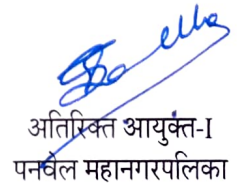 अतिरिक्त आयुक्त-I
पनवेल महानगरपलिका